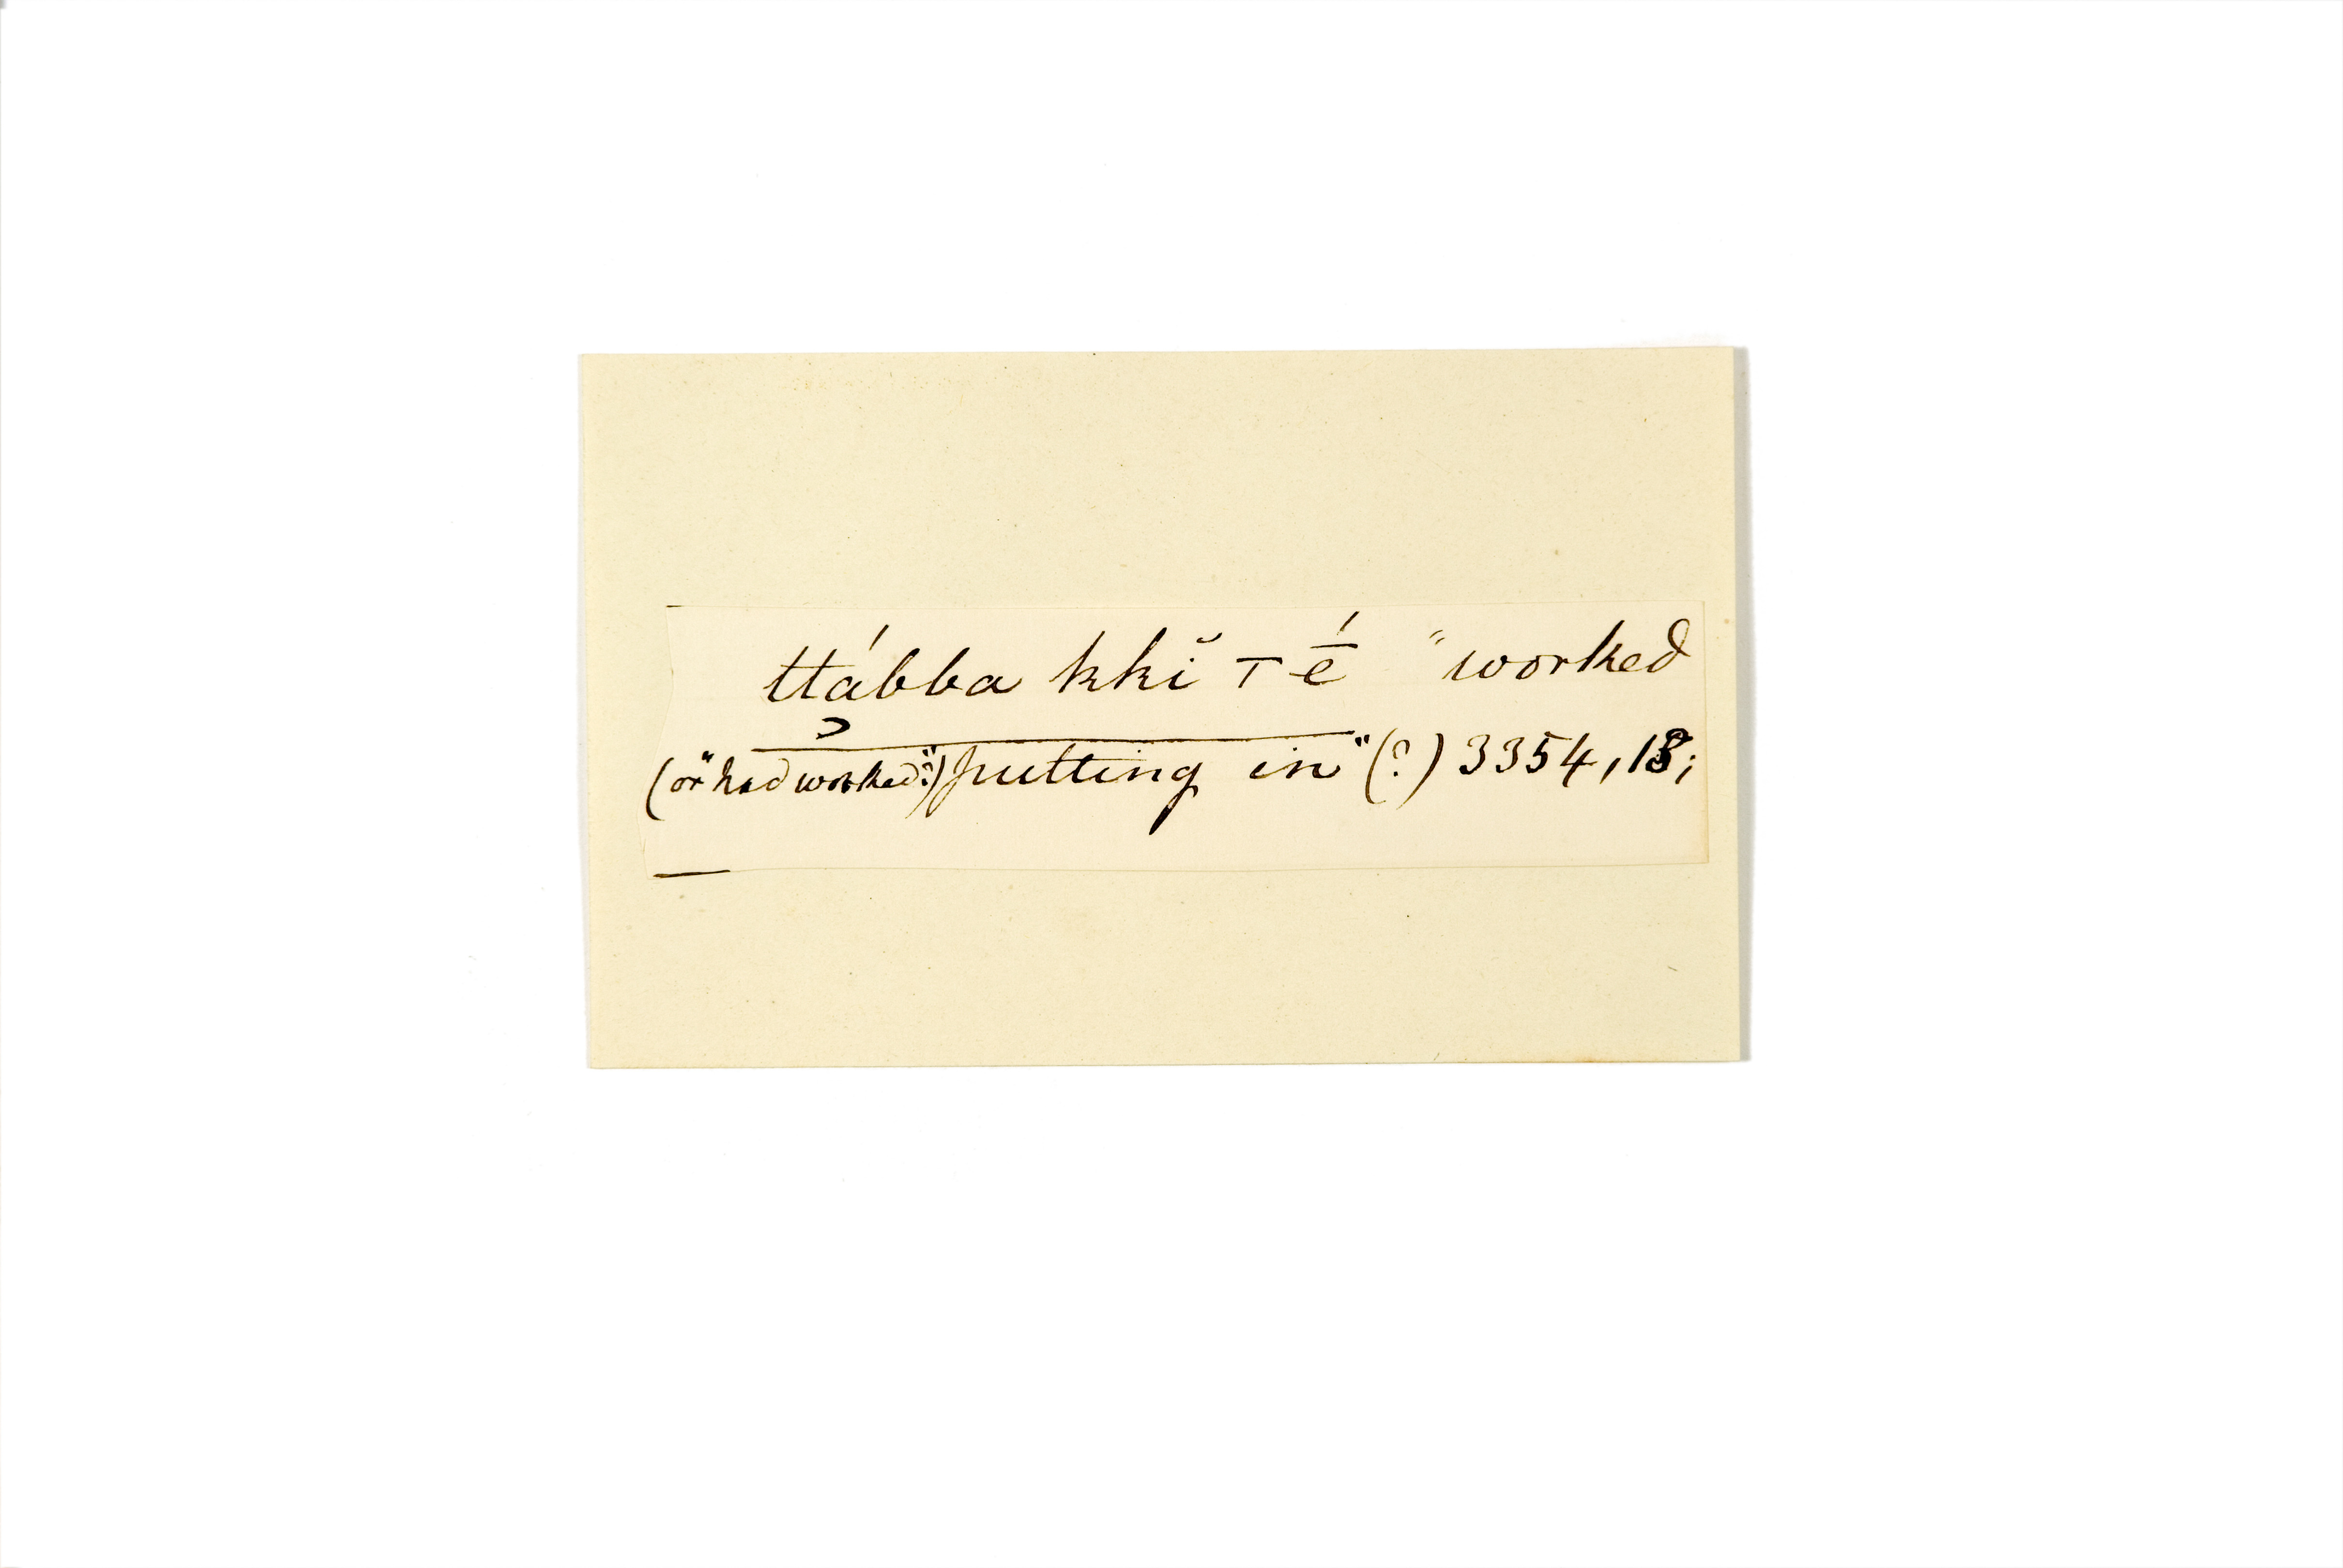 ttábba kkĭ ⊤ḗ "worked
(or "had worked"?) putting in" (?) 3354,18;